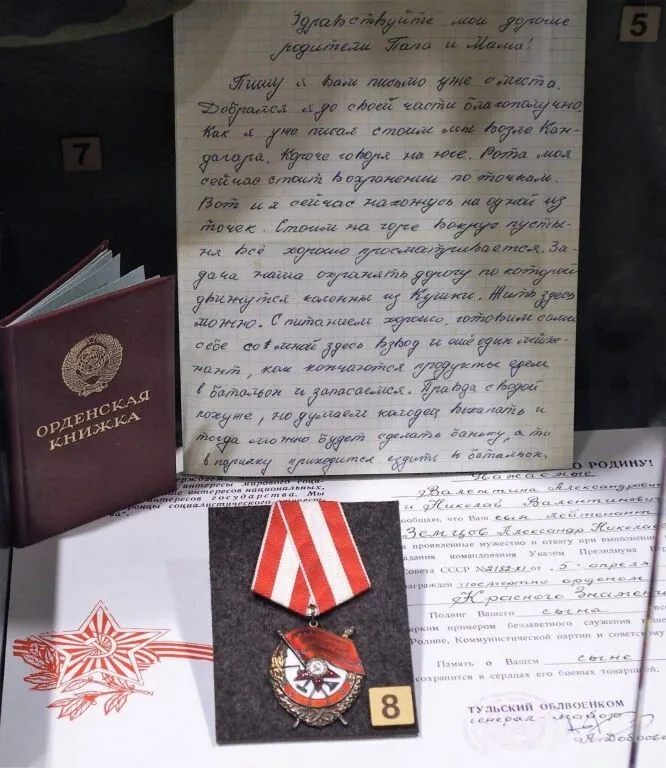 5
Здравствуйте мои дорогие
родители Папа и Мама!
Пишу я Вам письмо уже с места.
Добрался я до своей части благополучно.
Как я уже писал стоим мы возле Кан-
дагара. Короче говоря на юге. Рота моя
сейчас стоит в охранении по точкам.
Вот и я сейчас нахожусь на одной из
точек. Стоим на горе вокруг пусты-
ня всё хорошо просматривается. За-
дача наша охранять дорогу по которой
движутся колонны из Кушки. Жить здесь
можно. С питанием хорошо, готовим сами
себе со мной здесь взвод и ещё один лейте-
нант, как кончаются продукты едем
в батальон и запасаемся. Правда с водой
похуже, но думаем колодец выкапать и
тогда можно будет сделать баньку, а то
в парилку приходится ездить в батальон.
7
ОРДЕНСКАЯ
КНИЖКА
интересы мирового соци-
ные интересов национальных,
интересов государства. Мы
ронцы социалистического
О РОДИНУ!
Валентина Александровна
и Николай Валентинович
ообщаю, что Ваш сын лейтенант
Земцов Александр Никола
а проявленные мужество и отвагу при выполнении
адания командования Указом Президиума В
Совета СССР № 2182-XI от "5" апреля
агражден посмертно орденом
Красного Знамени
Подвиг Вашего сына
ярким примером беззаветного служения
Родине, Коммунистической партии и советскому
Память о Вашем сыне
сохранится в сердцах его боевых товарищей.
ТУЛЬСКИЙ ОБЛВОЕНКОМ
генерал-майор
8